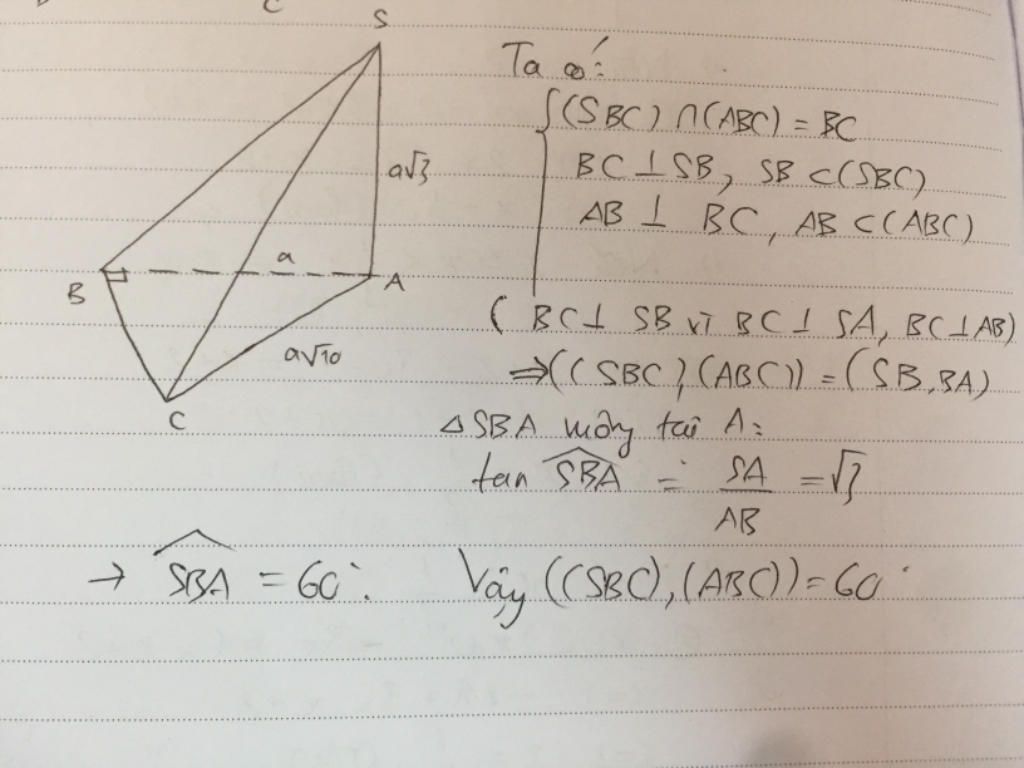 C
S
Ta có:
(SBC) ∩ (ABC) = BC
a√3
BC ⊥ SB, SB ⊂ (SBC)
AB ⊥ BC, AB ⊂ (ABC)
a
B
A
( BC ⊥ SB vì BC ⊥ SA, BC ⊥ AB)
a√10
⇒ ((SBC), (ABC)) = (SB, BA)
C
△SBA vuông tại A:
tan SBA = SA/AB = √3
→ SBA = 60°. Vậy ((SBC), (ABC)) = 60°